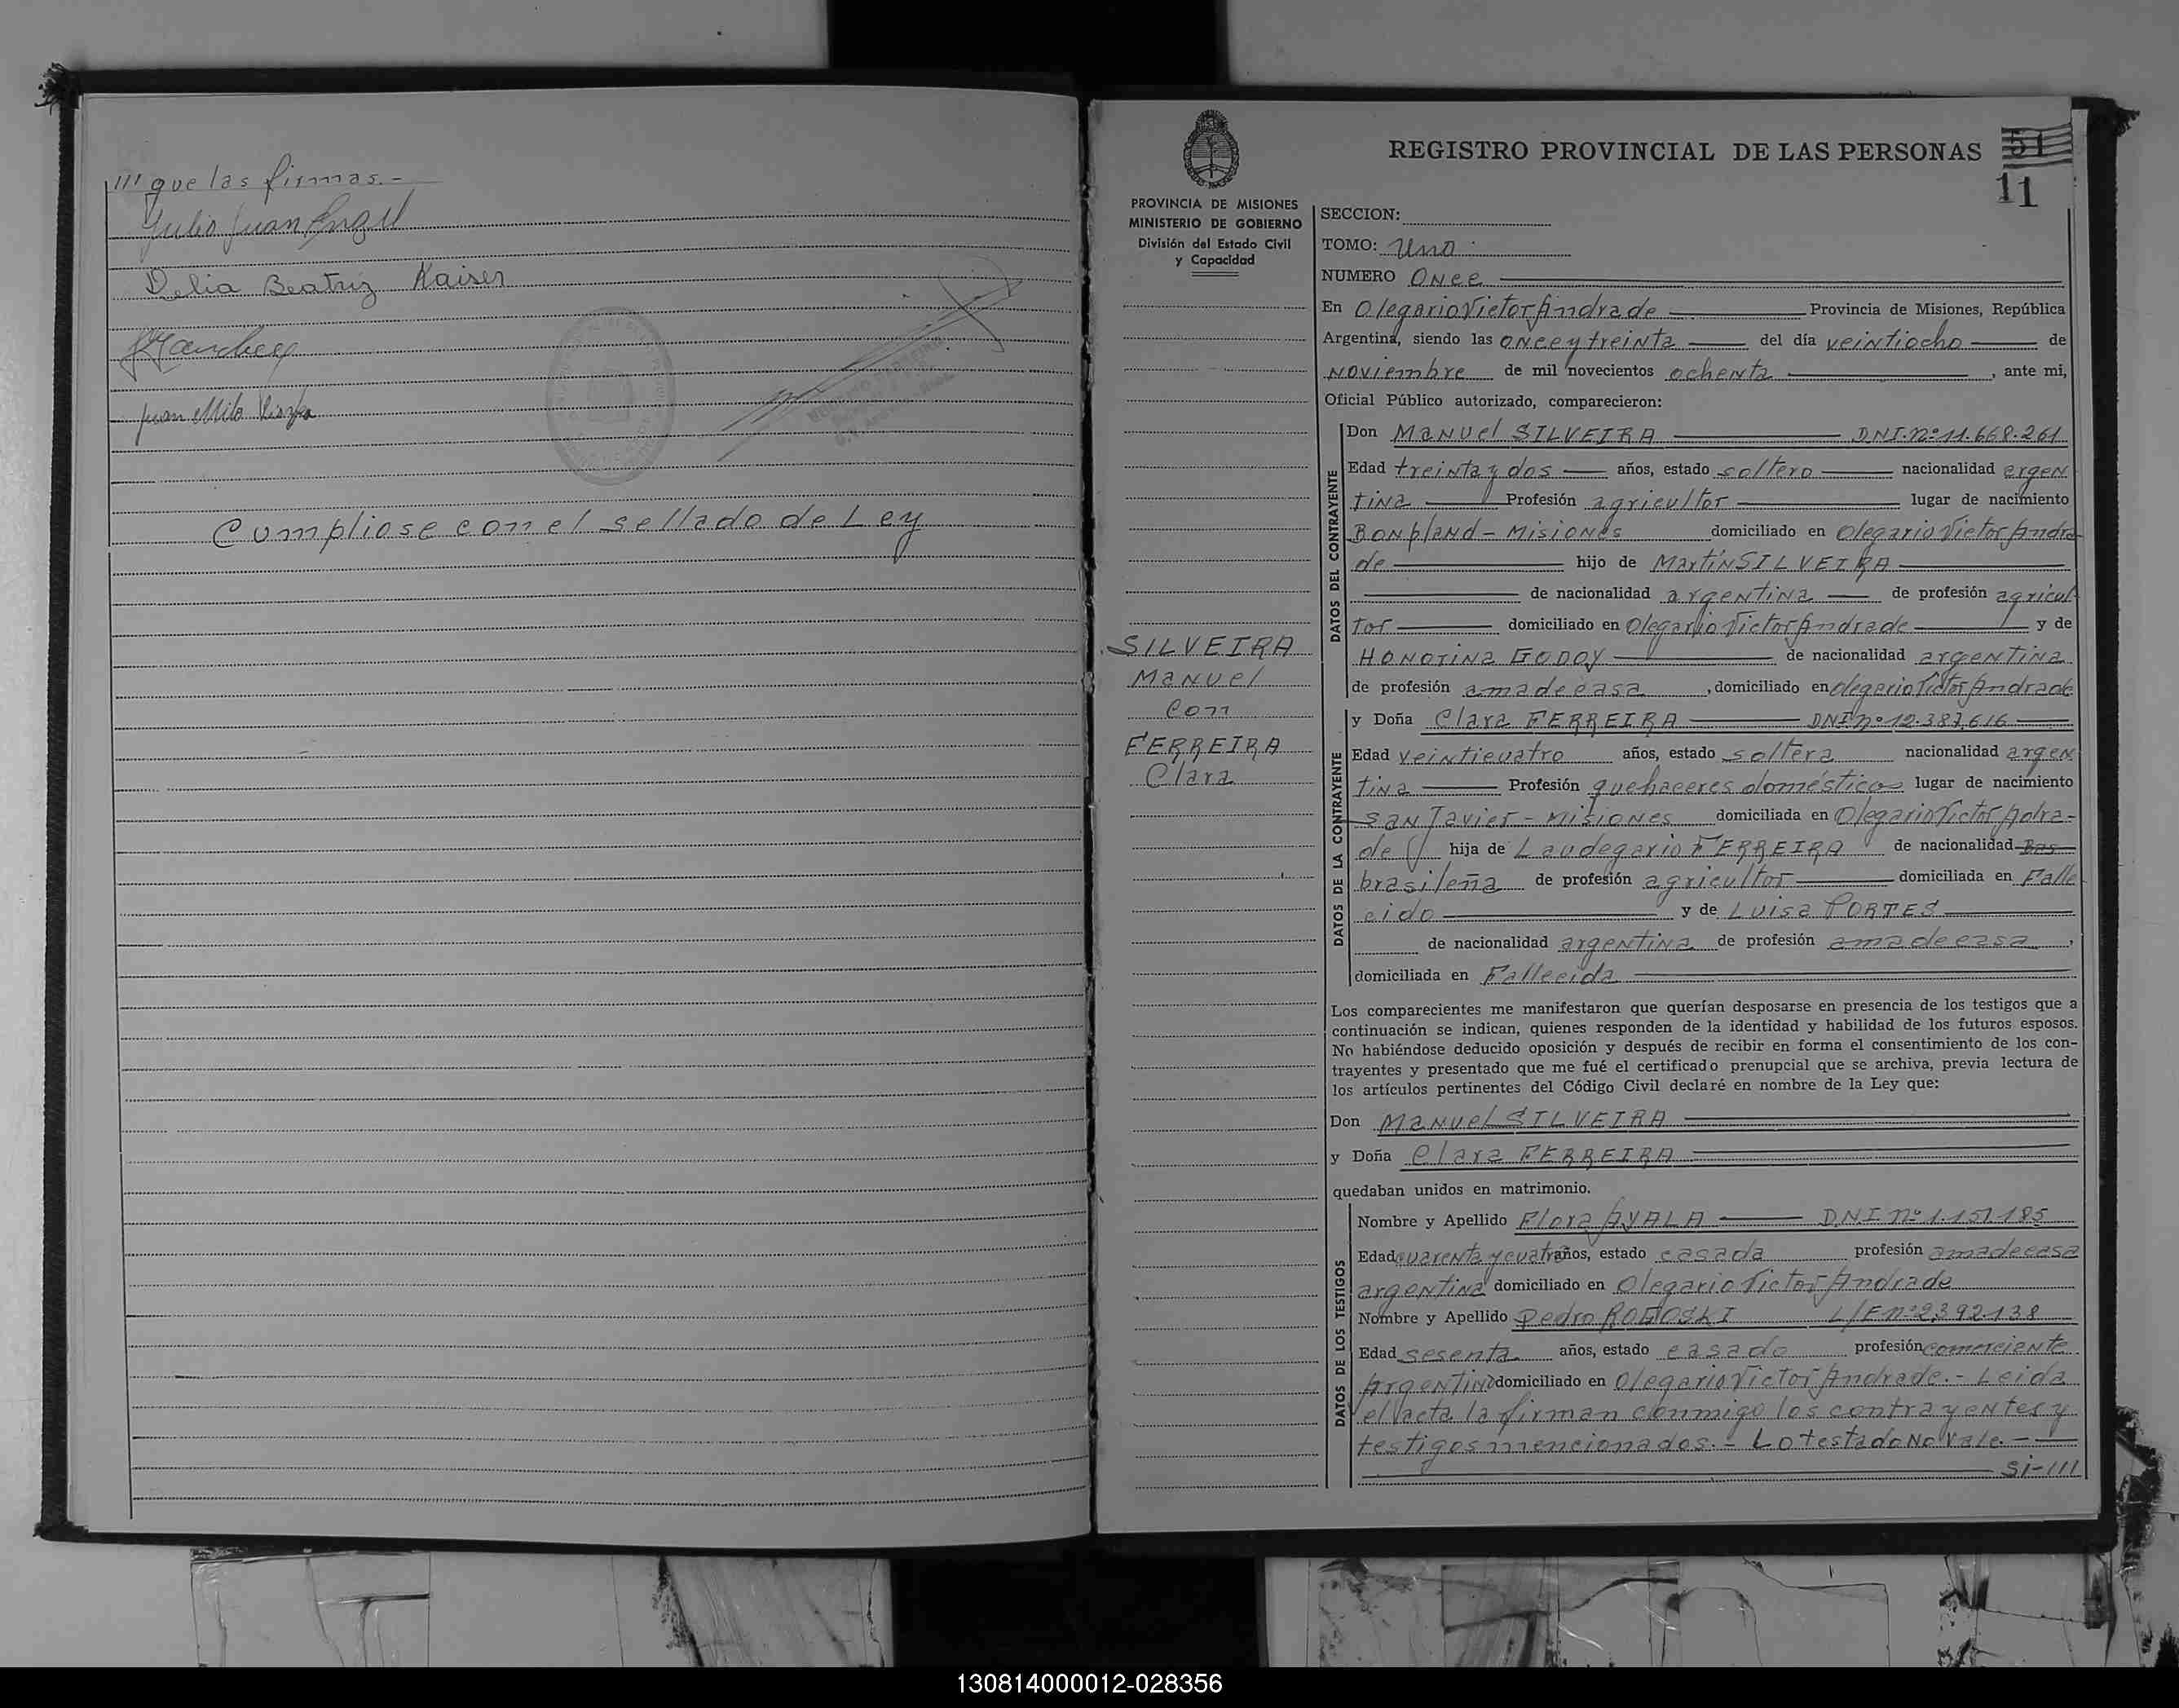 /// que las firmas.-
Julio Juan Engel
Delia Beatriz Kaiser
Juan
Cumpliose con el sellado de Ley
REGISTRO PROVINCIAL DE LAS PERSONAS 51
11
PROVINCIA DE MISIONES
MINISTERIO DE GOBIERNO
División del Estado Civil
y Capacidad
SILVEIRA
Manuel
con
FERREIRA
Clara
SECCION:
TOMO: Uno
NUMERO Once
En Olegario Victor Andrade Provincia de Misiones, República
Argentina, siendo las once y treinta del día veintiocho de
noviembre de mil novecientos ochenta, ante mi,
Oficial Público autorizado, comparecieron:
DATOS DEL CONTRAYENTE
Don Manuel SILVEIRA DNI.nº 11.668.261
Edad treinta y dos años, estado soltero nacionalidad argen
tina Profesión agricultor lugar de nacimiento
Bonpland - Misiones domiciliado en Olegario Victor Andra
de hijo de Martin SILVEIRA
de nacionalidad argentina de profesión agricul
tor domiciliado en Olegario Victor Andrade y de
Honorina GODOY de nacionalidad argentina
de profesión ama de casa, domiciliado en Olegario Victor Andrade
DATOS DE LA CONTRAYENTE
y Doña Clara FERREIRA DNI nº 12.383.616
Edad veinticuatro años, estado soltera nacionalidad argen
tina Profesión quehaceres domésticos lugar de nacimiento
San Javier - Misiones domiciliada en Olegario Victor Adra-
de hija de Laudegario FERREIRA de nacionalidad Bas
brasileña de profesión agricultor domiciliada en Falle
cido y de Luisa PORTES
de nacionalidad argentina de profesión ama de casa,
domiciliada en Fallecida
Los comparecientes me manifestaron que querían desposarse en presencia de los testigos que a
continuación se indican, quienes responden de la identidad y habilidad de los futuros esposos.
No habiéndose deducido oposición y después de recibir en forma el consentimiento de los con-
trayentes y presentado que me fué el certificado prenupcial que se archiva, previa lectura de
los artículos pertinentes del Código Civil declaré en nombre de la Ley que:
Don Manuel SILVEIRA
y Doña Clara FERREIRA
quedaban unidos en matrimonio.
DATOS DE LOS TESTIGOS
Nombre y Apellido Flora AYALA DNI nº 1.151.185
Edad cuarenta y cuatro años, estado casada profesión ama de casa
argentina domiciliado en Olegario Victor Andrade
Nombre y Apellido Pedro ROGOSKI L/E nº 2.392.138
Edad sesenta años, estado casado profesión comerciente
Argentino domiciliado en Olegario Victor Andrade.- Leida
el acta la firman conmigo los contrayentes y
testigos mencionados.- Lo testado No Vale.-
Si-///
130814000012-028356